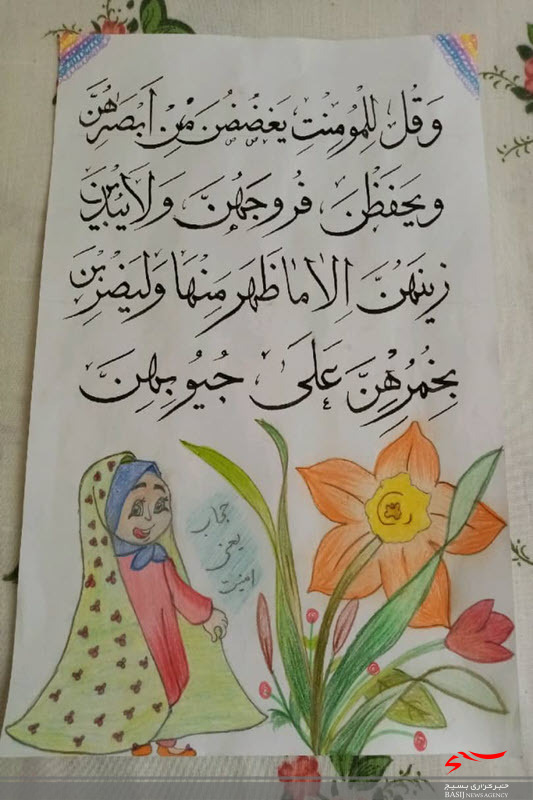 وَقُل لِلْمُومِنتِ يَغضُضْنَ مِنْ اَبْصَرِهُنَّ
وَيَحفَظْنَ فُرُوجَهُنَّ وَلَایُبْدِینَ
زینَهُنَّ اِلّامٰا ظَهَرَ مِنْهَا وَلیَضرِبْنَ
بِخُمُرِهِنَّ عَلَیٰ جُیُوبِهِنَّ
حجاب
یعنی
امنیت
خبرگزاری بسیج
BASIJ NEWS AGENCY